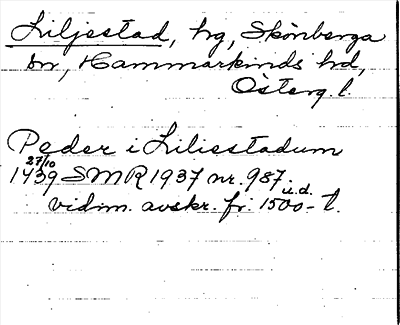 Liljestad, hg, Skönberga
sn, Hammarkinds hd,
Österg. l.
Peder i Liliestadum
27/10
1439 SMR 1937 nr. 987.
u.d.
vidim. avskr. fr. 1500-t.